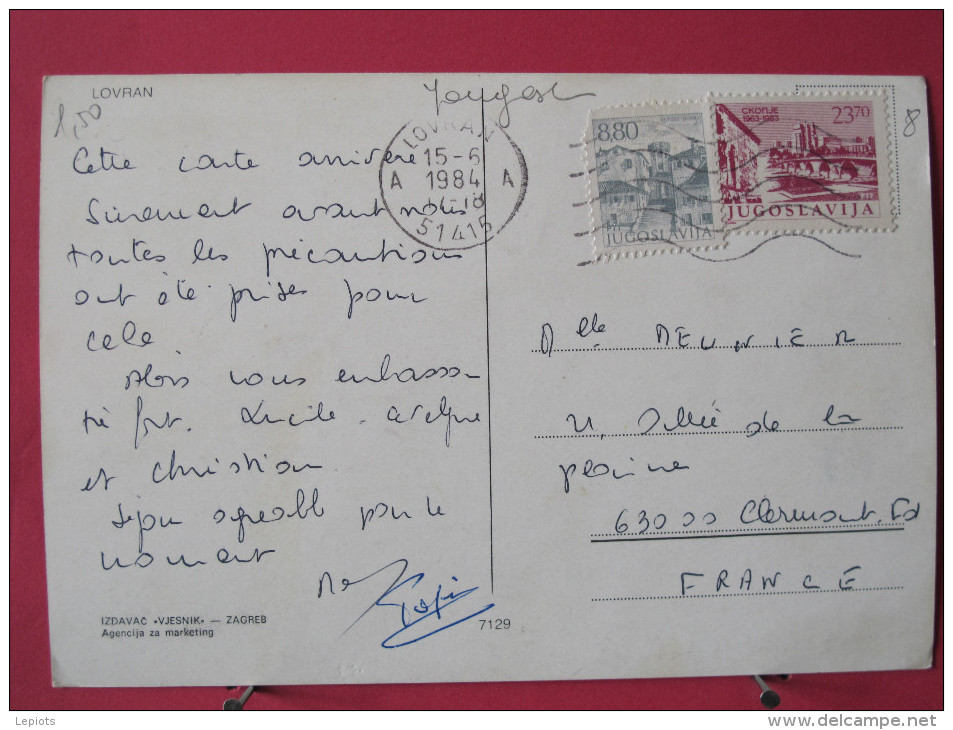 LOVRAN
1,50
8
LOVRAN
15-6
A 1984 A
51415
8.80
JUGOSLAVIJA
СКОПЈЕ
1963-1983
23.70
JUGOSLAVIJA
Cette carte arrivera
Sûrement avant nous
toutes les précautions
ont été prises pour
cela
Alors vous embrassons
très fort. Lucile
et Christian
Séjour agréable pour le
moment
Mlle MEUNIER
Allée de la
plaine
63000 Clermont. Fd
FRANCE
IZDAVAČ »VJESNIK« — ZAGREB
Agencija za marketing
7129
Lepiots
delcampe.net